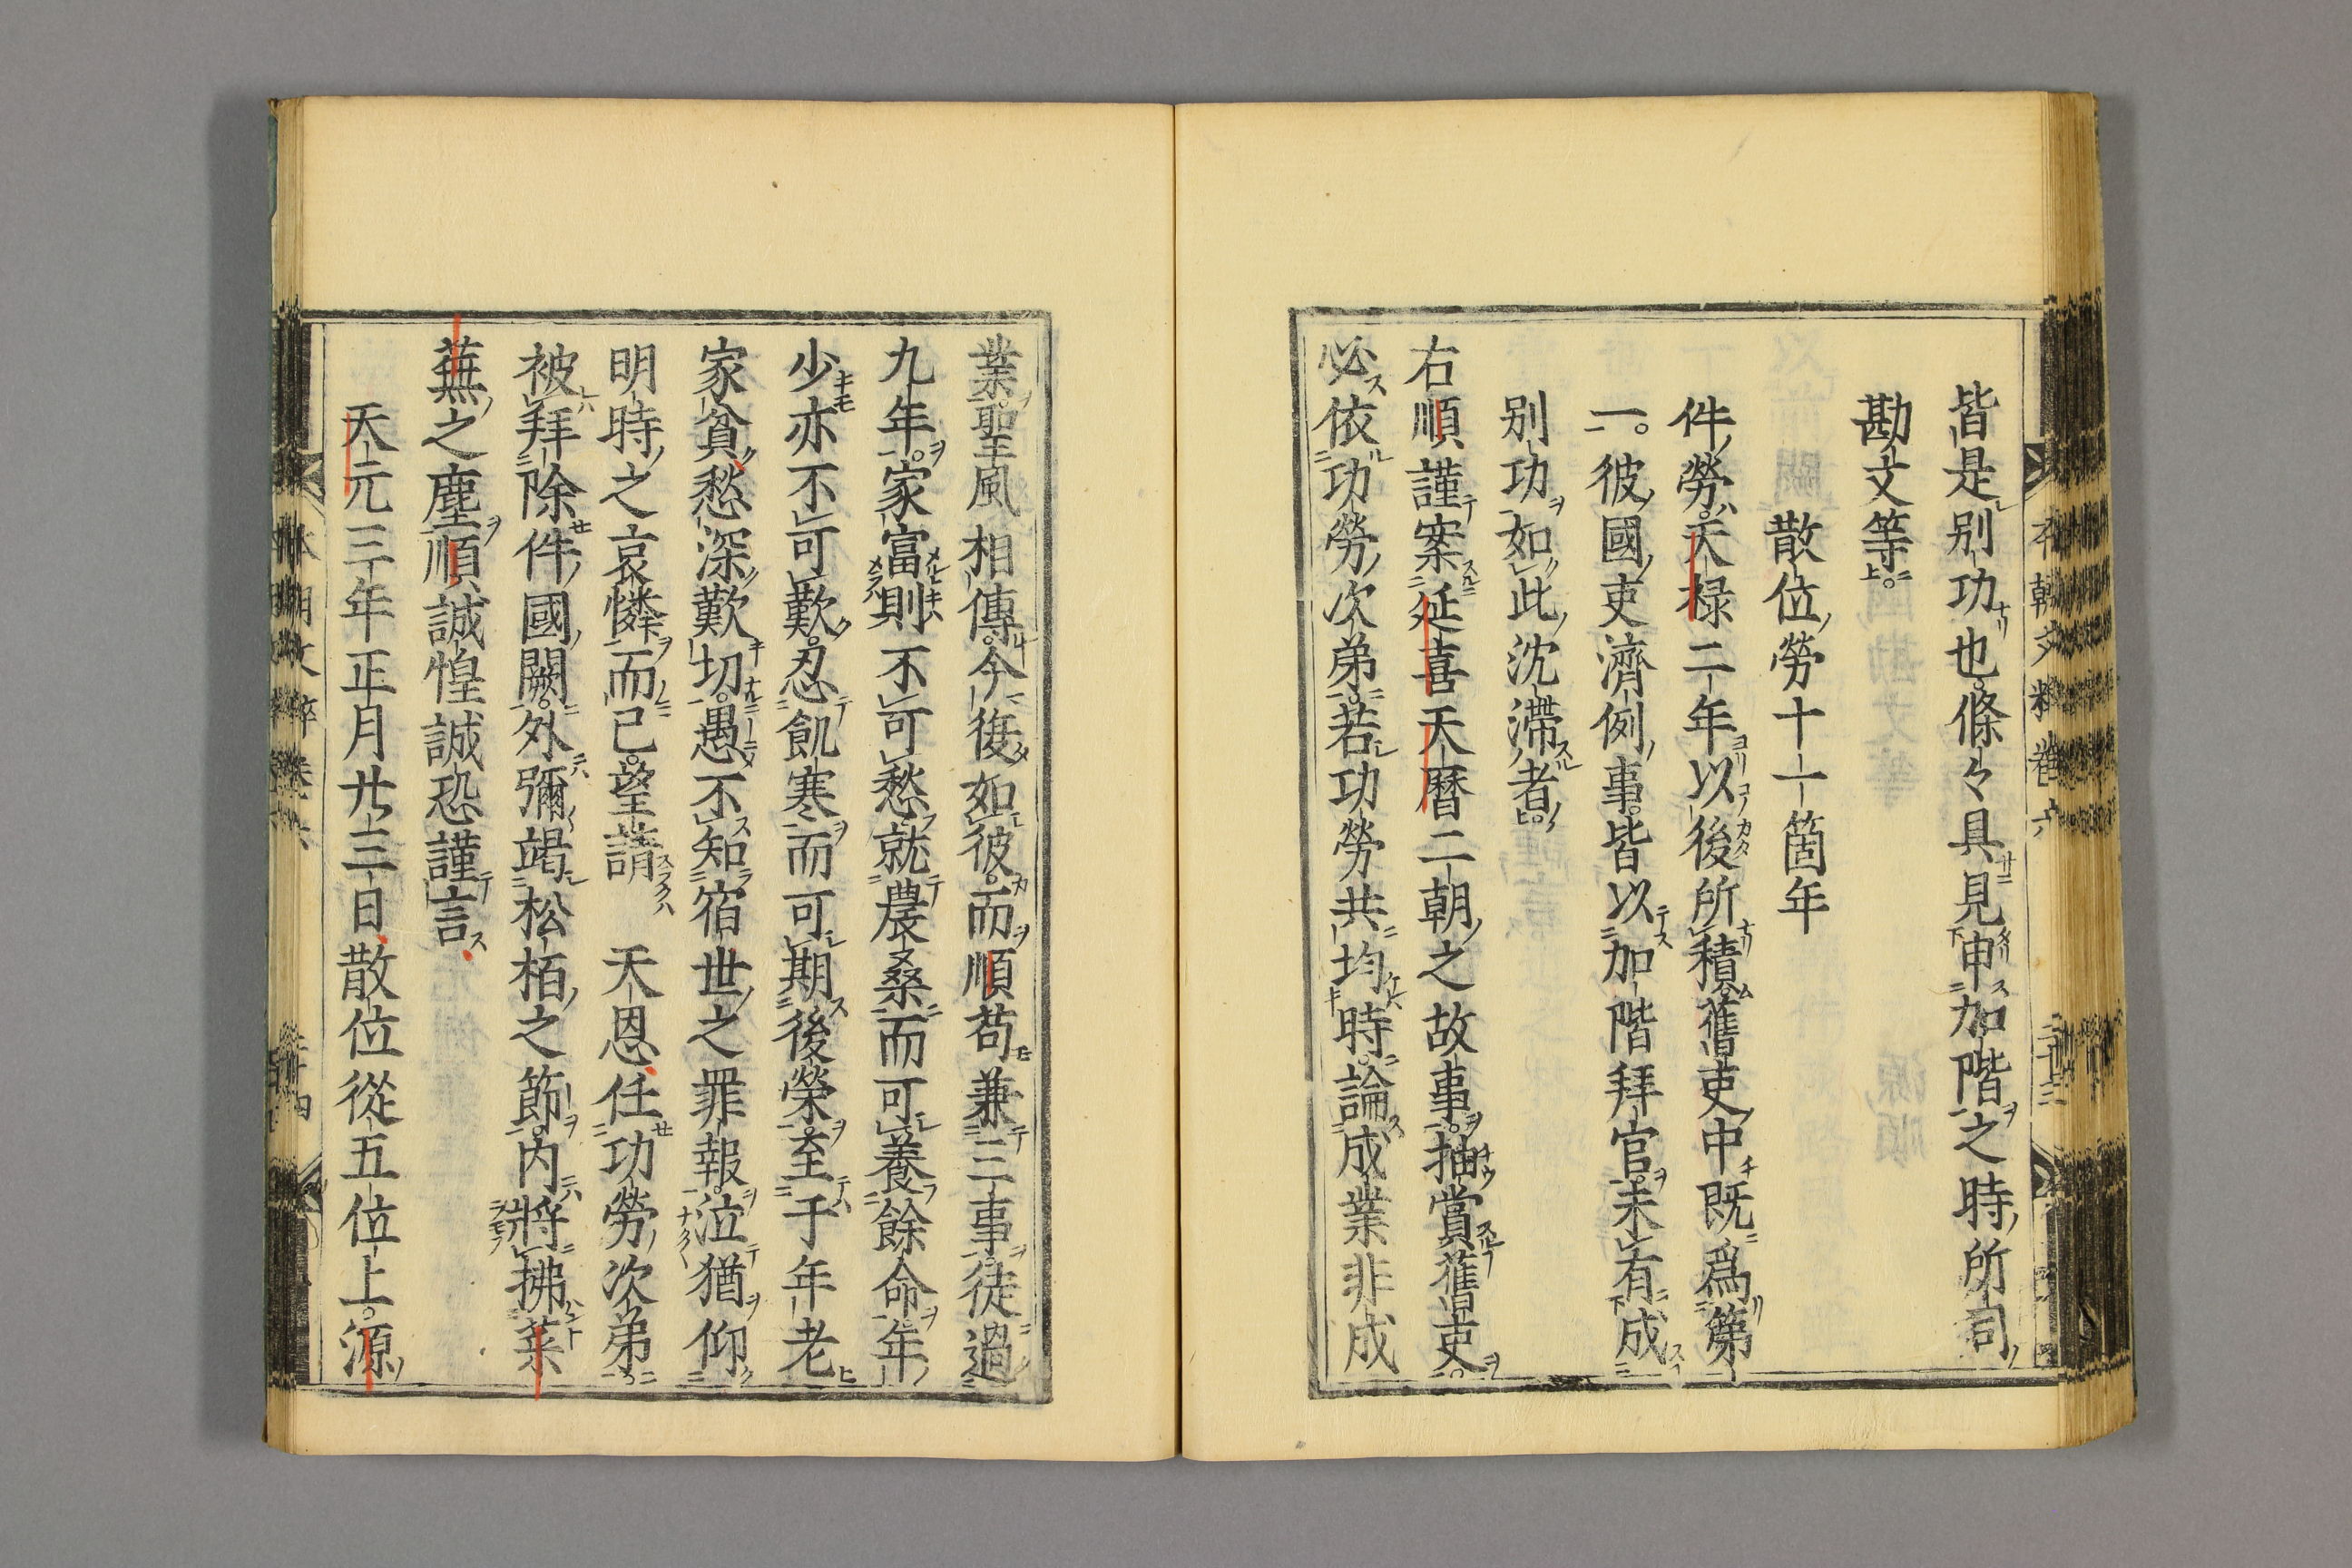 皆是別功也條々具見申加階之時所司
勘文等
散位勞十一箇年
件勞天禄二年以後所積舊吏中既爲第
一彼國吏濟例事皆以加階拜官未有成
別功如此沈滯者
右順謹案延喜天曆二朝之故事抽賞舊吏
必依功勞次弟若功勞共均時論成業非成
業聖風相傳今復如彼而順苟兼三事徒過
九年家富則不可愁就農桑而可養餘命年
少亦不可歎忍飢寒而可期後榮至于年老
家貧愁深歎切愚不知宿世之罪報泣猶仰
明時之哀憐而已望請 天恩任功勞次弟
被拜除件國闕外彌竭松栢之節內將拂菜
蕪之塵順誠惶誠恐謹言
天元三年正月廿三日散位從五位上源